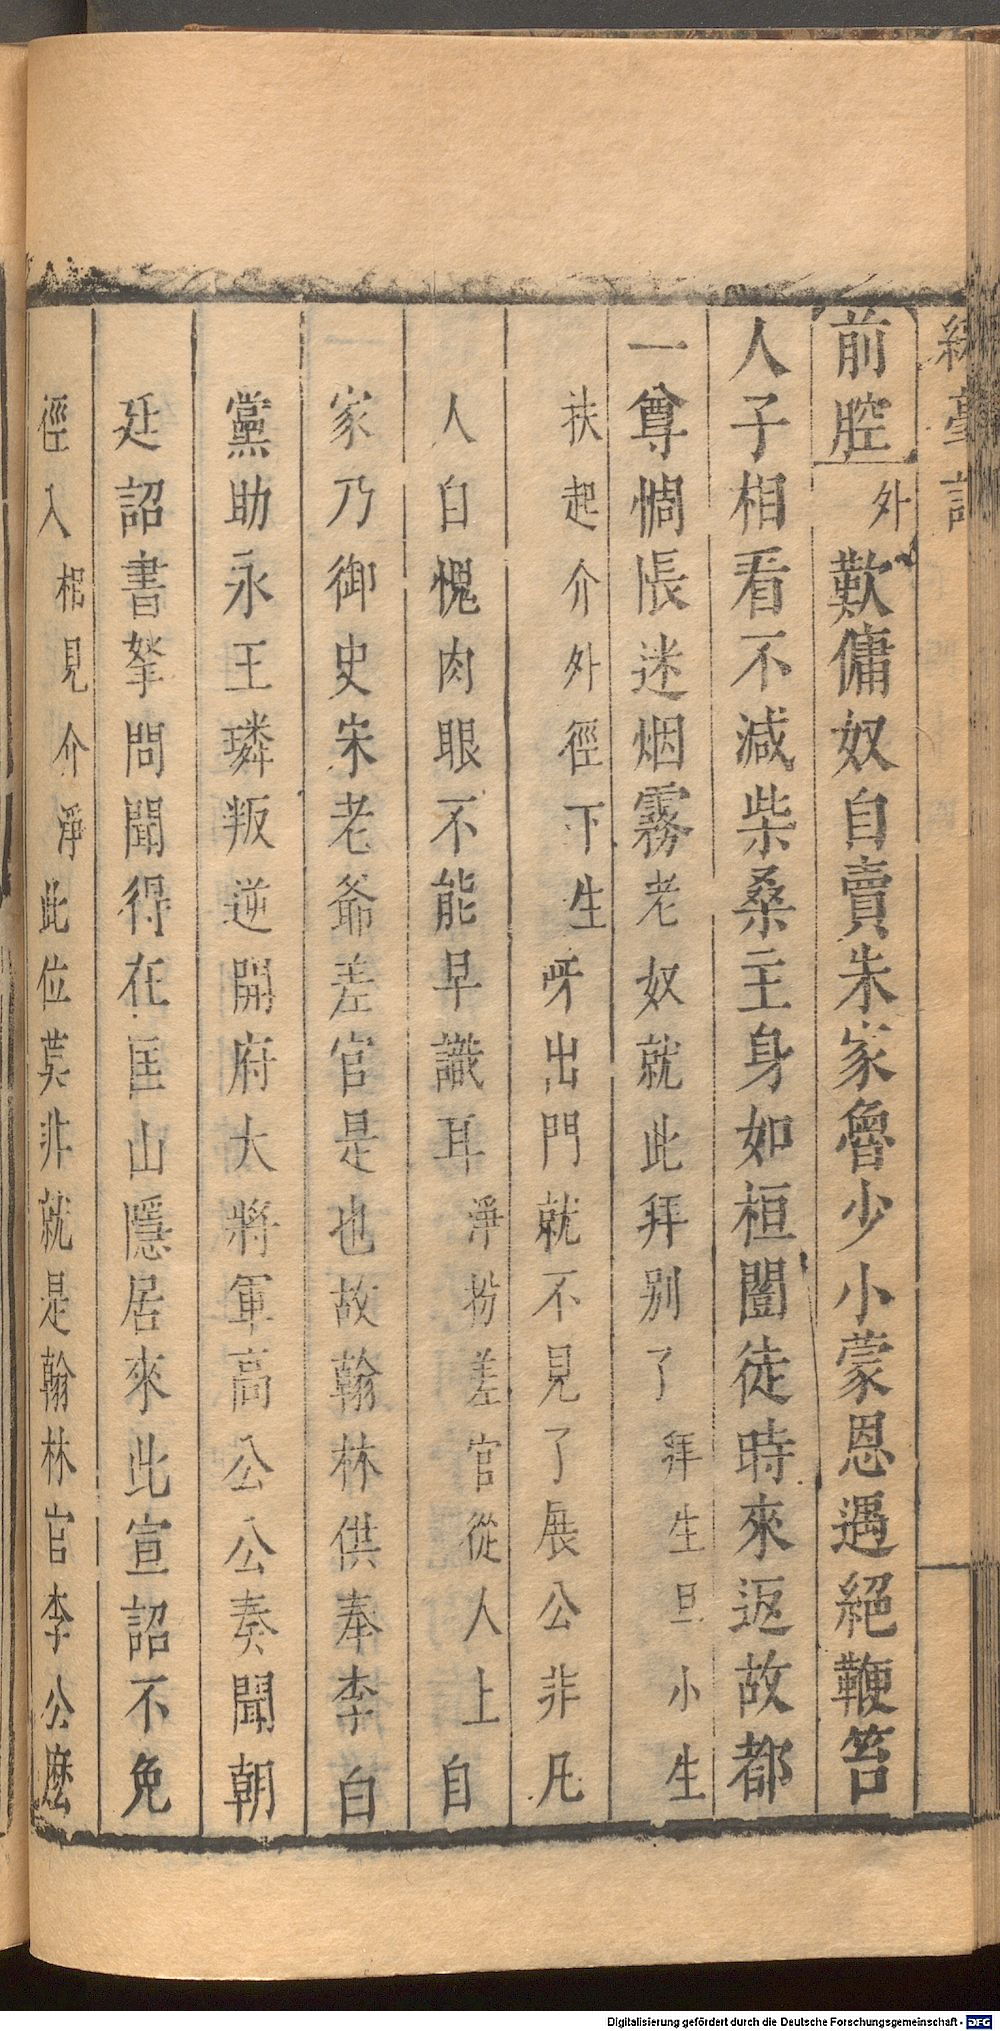 前腔外歎傭奴自賣朱家魯少小蒙恩遇絕鞭笞
人子相看不減柴桑主身如桓闓徒時來返故都
一尊惆悵迷烟霧老奴就此拜别了拜生旦小生
扶起介外徑下生呀出門就不見了展公非凡
人自愧肉眼不能早識耳淨扮差官從人上自
家乃御史宋老爺差官是也故翰林供奉李白
黨助永王璘叛逆開府大將軍高公公奏聞朝
廷詔書拏問聞得在匡山隱居來此宣詔不免
徑入相見介淨此位莫非就是翰林官李公麽
Digitalisierung gefördert durch die Deutsche Forschungsgemeinschaft - DFG